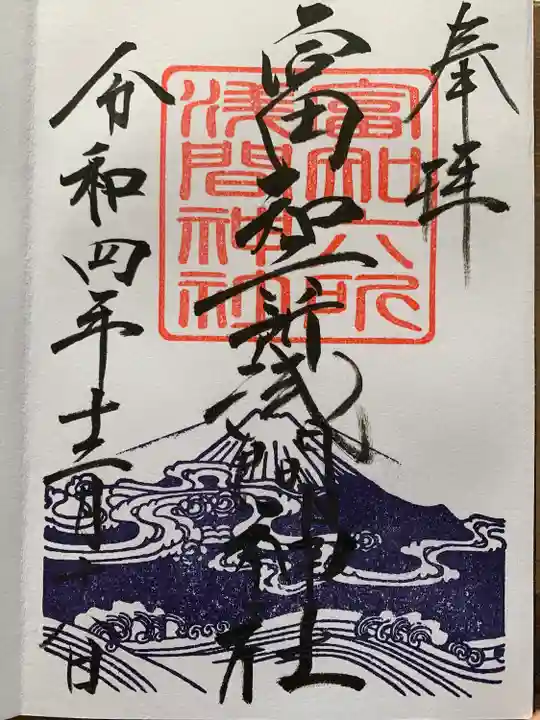 奉拝
富知六所浅間神社
令和四年十二月十一日
富知六所
浅間神社